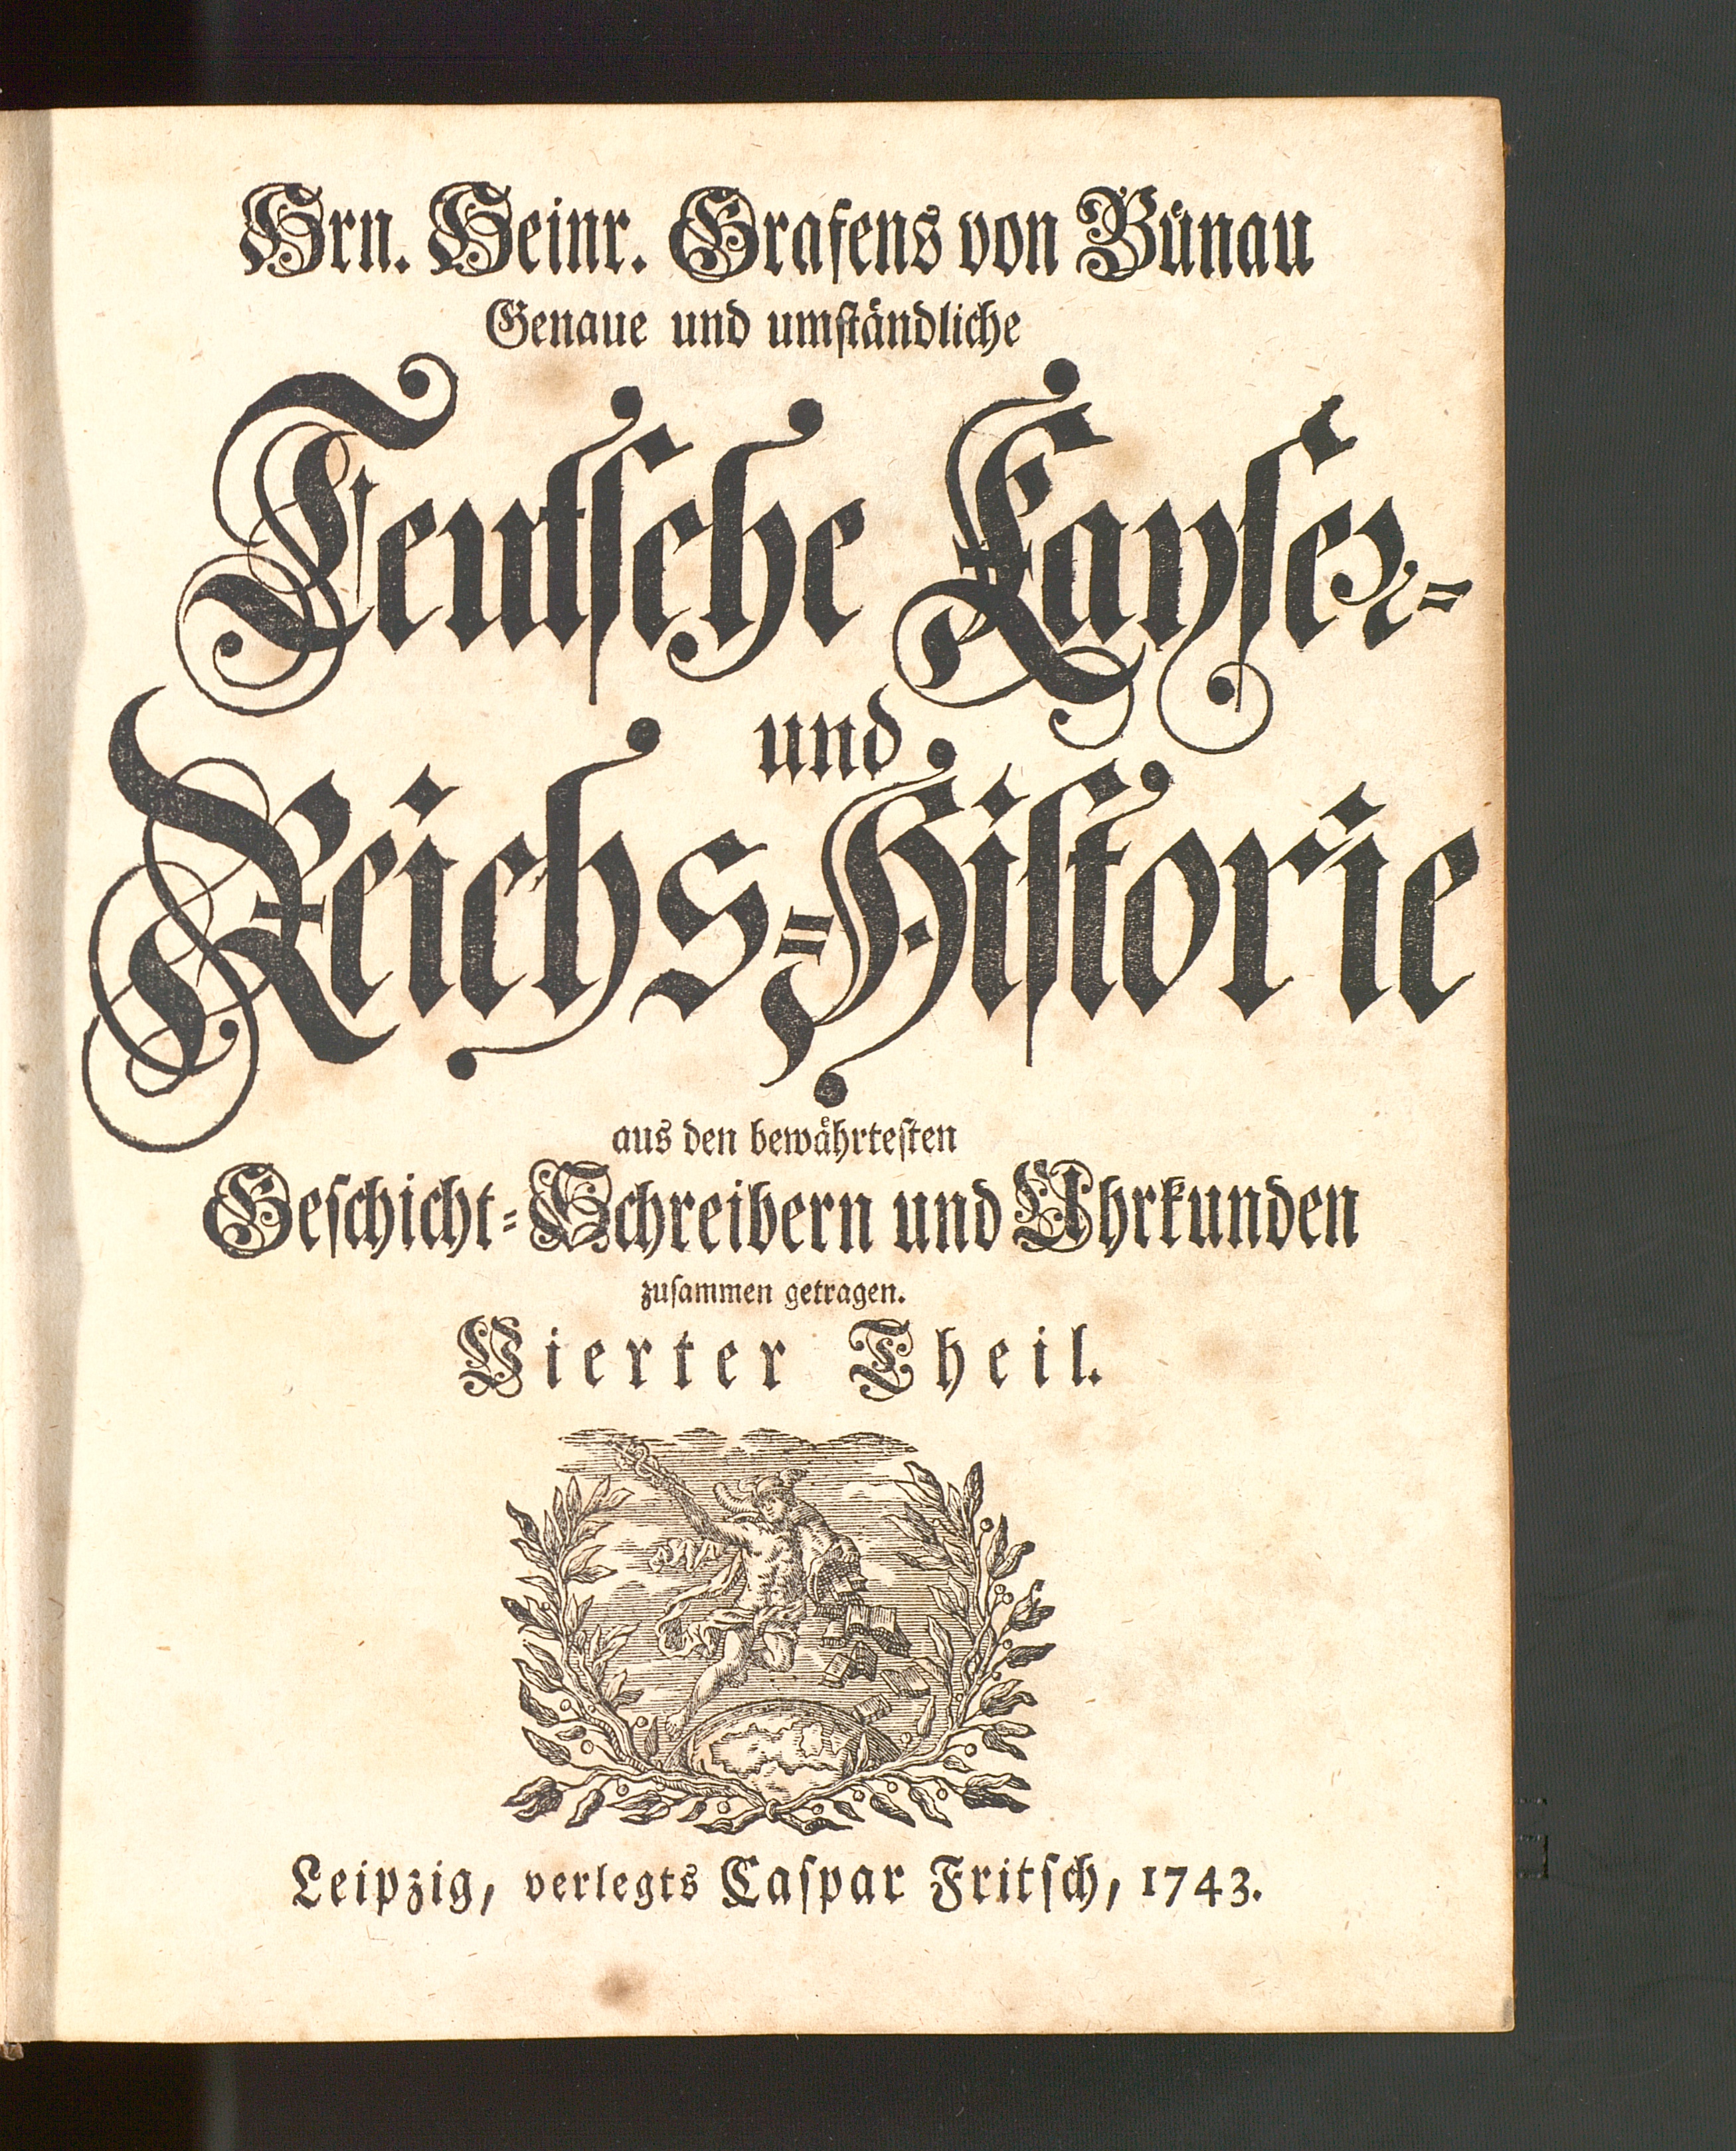 Hrn. Heinr. Grafens von Bünau
Genaue und umständliche
Teutsche Kayser-
und
Reichs-Historie
aus den bewährtesten
Geschicht-Schreibern und Uhrkunden
zusammen getragen.
Vierter Theil.
Leipzig, verlegts Caspar Fritsch, 1743.